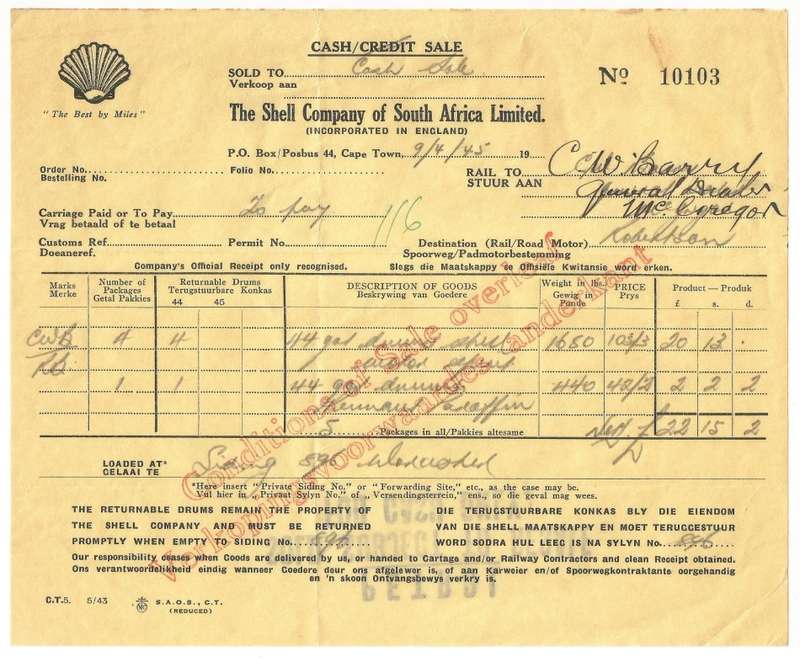 CASH/CREDIT SALE
SOLD TO Cash Sale
Verkoop aan
No 10103
"The Best by Miles"
The Shell Company of South Africa Limited.
(INCORPORATED IN ENGLAND)
P.O. Box/Posbus 44, Cape Town, 9/4/45 19
Order No.
Bestelling No.
Folio No.
RAIL TO C W Barry
STUUR AAN General Dealer
McGregor
Carriage Paid or To Pay To pay 11/6
Vrag betaald of te betaal
Customs Ref.
Doeaneref.
Permit No.
Destination (Rail/Road Motor) Robertson
Spoorweg/Padmotorbestemming
Company's Official Receipt only recognised. Slegs die Maatskappy se Offisiële Kwitansie word erken.
Marks
Merke
Number of Packages
Getal Pakkies
Returnable Drums
Terugstuurbare Konkas
44 45
DESCRIPTION OF GOODS
Beskrywing van Goedere
Weight in lbs.
Gewig in Ponde
PRICE
Prys
Product — Produk
£ s. d.
CWB 4 4 44 gal drums Shell 1680 103/3 20 13
motor spirit
1 1 44 gal drums 440 42/2 2 2 2
Paraffin
5 Packages in all/Pakkies altesame Nett £ 22 15 2
LOADED AT* Siding 896
GELAAI TE
*Here insert "Private Siding No." or "Forwarding Site," etc., as the case may be.
Vul hier in „Privaat Sylyn No." of „Versendingsterrein," ens., so die geval mag wees.
THE RETURNABLE DRUMS REMAIN THE PROPERTY OF
THE SHELL COMPANY AND MUST BE RETURNED
PROMPTLY WHEN EMPTY TO SIDING No. 896
DIE TERUGSTUURBARE KONKAS BLY DIE EIENDOM
VAN DIE SHELL MAATSKAPPY EN MOET TERUGGESTUUR
WORD SODRA HUL LEEG IS NA SYLYN No. 896
Our responsibility ceases when Goods are delivered by us, or handed to Cartage and/or Railway Contractors and clean Receipt obtained.
Ons verantwoordelikheid eindig wanneer Goedere deur ons afgelewer is, of aan Karweier en/of Spoorwegkontraktante oorgehandig
en 'n skoon Ontvangsbewys verkry is.
C.T.5. 5/43
S.A.O.S., C.T.
(REDUCED)
Conditions of Sale overleaf
Verkopingsvoorwaardes anderkant